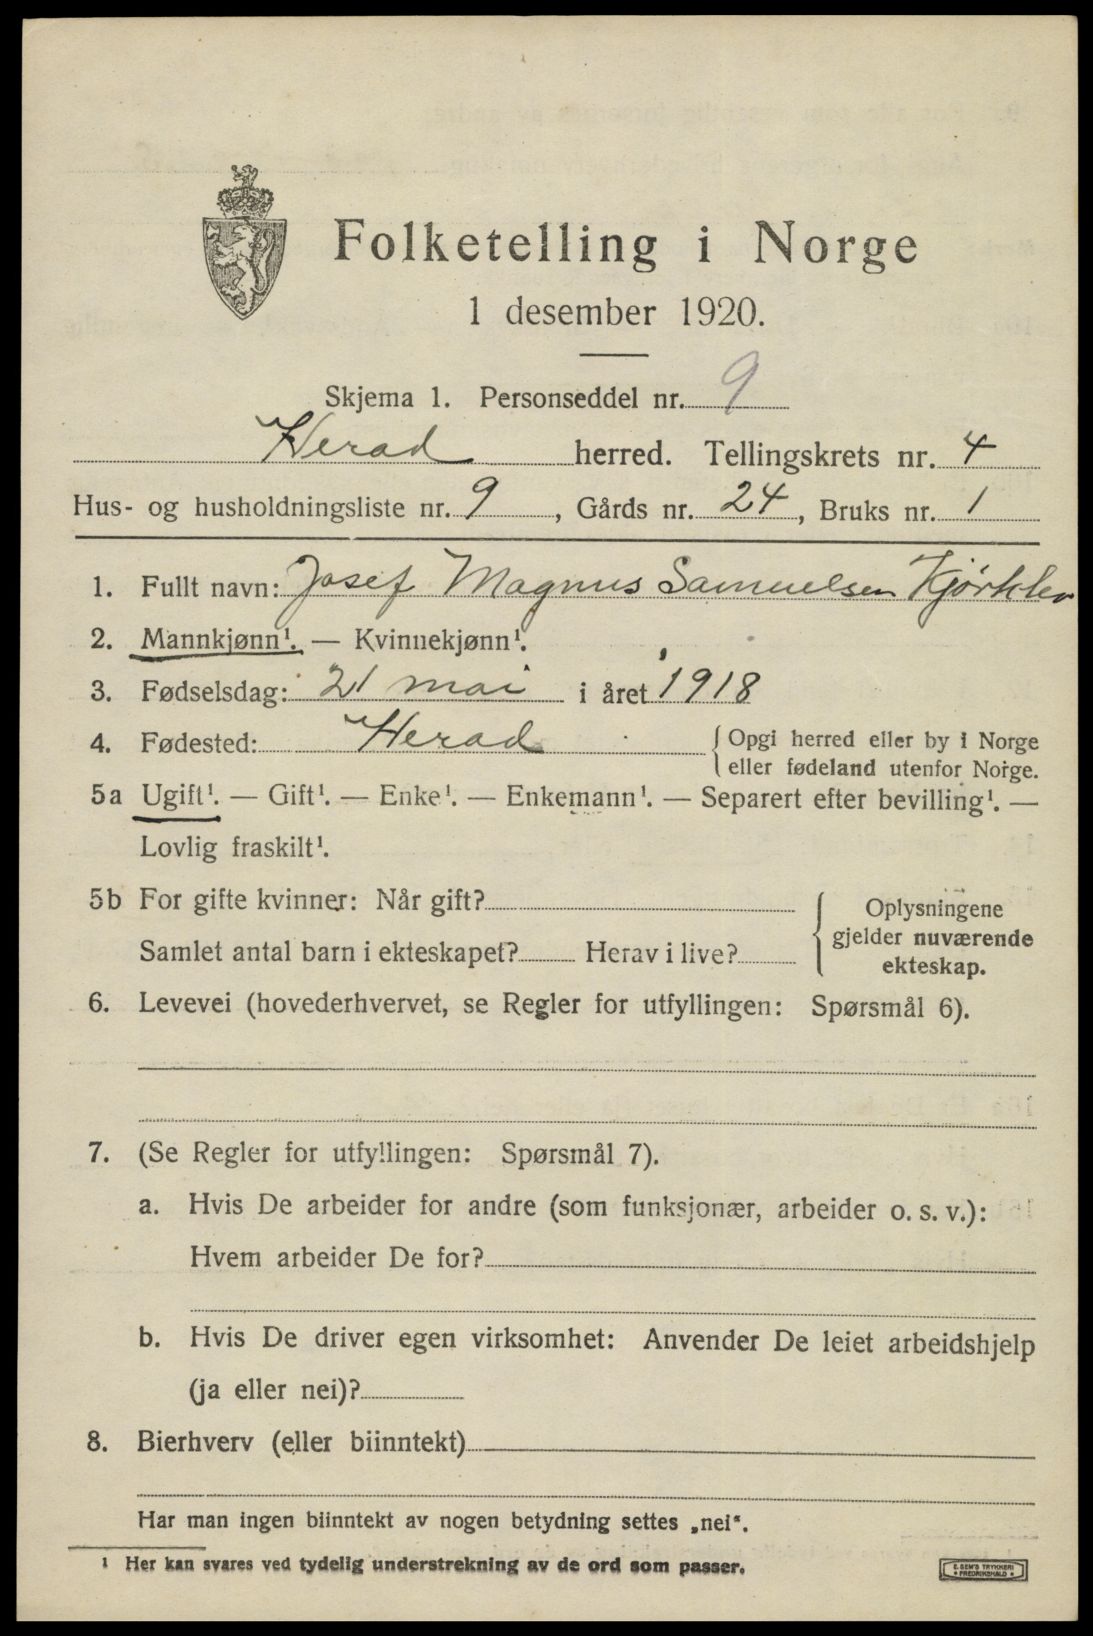 Folketelling i Norge
1 desember 1920.
Skjema 1. Personseddel nr. 9
Herad herred. Tellingskrets nr. 4
Hus- og husholdningsliste nr. 9, Gårds nr. 24, Bruks nr. 1
1. Fullt navn: Josef Magnus Samuelsen Kjørklev
2. Mannkjønn¹. — Kvinnekjønn¹.
3. Fødselsdag: 21 mai i året 1918
4. Fødested: Herad { Opgi herred eller by i Norge
eller fødeland utenfor Norge.
5a Ugift¹. — Gift¹. — Enke¹. — Enkemann¹. — Separert efter bevilling¹. —
Lovlig fraskilt¹.
5b For gifte kvinner: Når gift?
Samlet antal barn i ekteskapet? Herav i live?
Oplysningene
gjelder nuværende
ekteskap.
6. Levevei (hovederhvervet, se Regler for utfyllingen: Spørsmål 6).
7. (Se Regler for utfyllingen: Spørsmål 7).
a. Hvis De arbeider for andre (som funksjonær, arbeider o. s. v.):
Hvem arbeider De for?
b. Hvis De driver egen virksomhet: Anvender De leiet arbeidshjelp
(ja eller nei)?
8. Bierhverv (eller biinntekt)
Har man ingen biinntekt av nogen betydning settes „nei“.
¹ Her kan svares ved tydelig understrekning av de ord som passer.
E. SEM'S TRYKKERI
• FREDRIKSHALD •